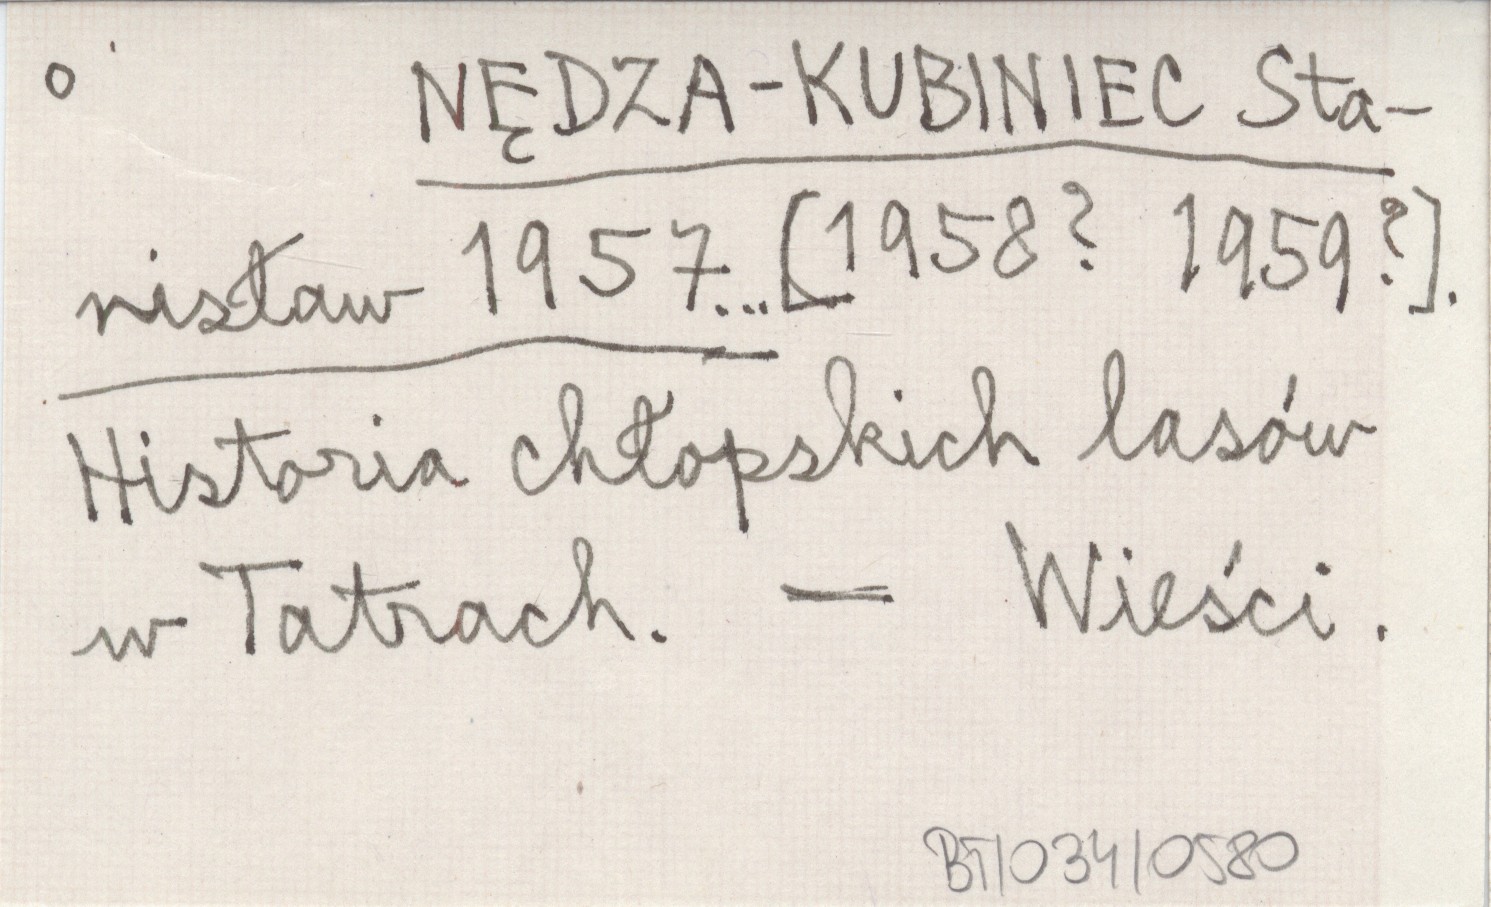 o NĘDZA-KUBINIEC Sta-
nisław 1957... [1958? 1959?].
Historia chłopskich lasów
w Tatrach. — Wieści.
BT/034/0580